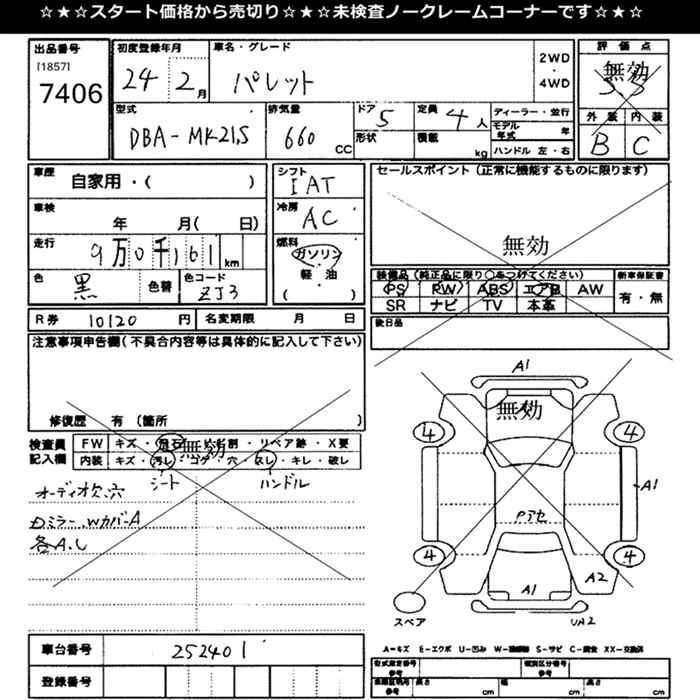 ☆★☆スタート価格から売切り☆★☆未検査ノークレームコーナーです☆★☆
出品番号 初度登録年月 車名・グレード 2WD・4WD 評価点
[1857] 7406 24 2月 パレット 無効 3.5
型式 排気量 ドア 5 定員 4人 ディーラー・並行 外装 内装
DBA-MK21S 660CC 形状 積載 kg モデル年式 年 B C
ハンドル 左・右
車歴 自家用・( ) シフト IAT セールスポイント(正常に機能するものに限ります)
車検 年 月( 日) 冷房 AC 無効
走行 9万0千161km 燃料 ガソリン 軽・油 ( )
色 黒 色替 色コード ZJ3
装備品(純正品に限り○をつけてください) 新車保証書
PS PW ABS エアB AW 有・無
SR ナビ TV 本革
R券 10120円 名変期限 月 日 後日品
注意事項申告欄(不具合内容等は具体的に記入して下さい)
修復歴 有(箇所 )
検査員記入欄 FW キズ・飛石・ ・リペア跡・X要
内装 キズ・汚レ・コゲ・穴・スレ・キレ・破レ
無効
シート ハンドル
オーディオ欠.穴
ロミラー.Wカバー A
各A.U
A1
無効
4 4
A1
Pアセ
4 4
A2
A1
スペア UA2
A-キズ E-エクボ U-凹み W-補修跡 S-サビ C-腐食 XX-交換済
車台番号 252401
登録番号
型式指定番号 参考 類別区分番号 参考
参考 長さ cm 幅 cm 高さ cm